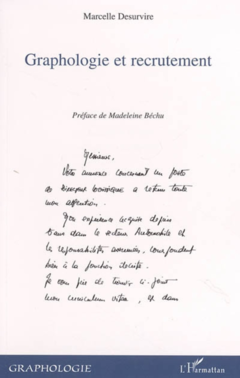 Marcelle Desurvire
Graphologie et recrutement
Préface de Madeleine Béchu
Monsieur,
Votre annonce concernant un poste
de a retenu toute
mon attention.
Mon expérience acquise depuis
dans le secteur Automobile et
les responsabilités assumées, correspondent
bien à la fonction décrite.
Je vous prie de trouver ci-joint
mon curriculum vitae, et dans
GRAPHOLOGIE
L'Harmattan